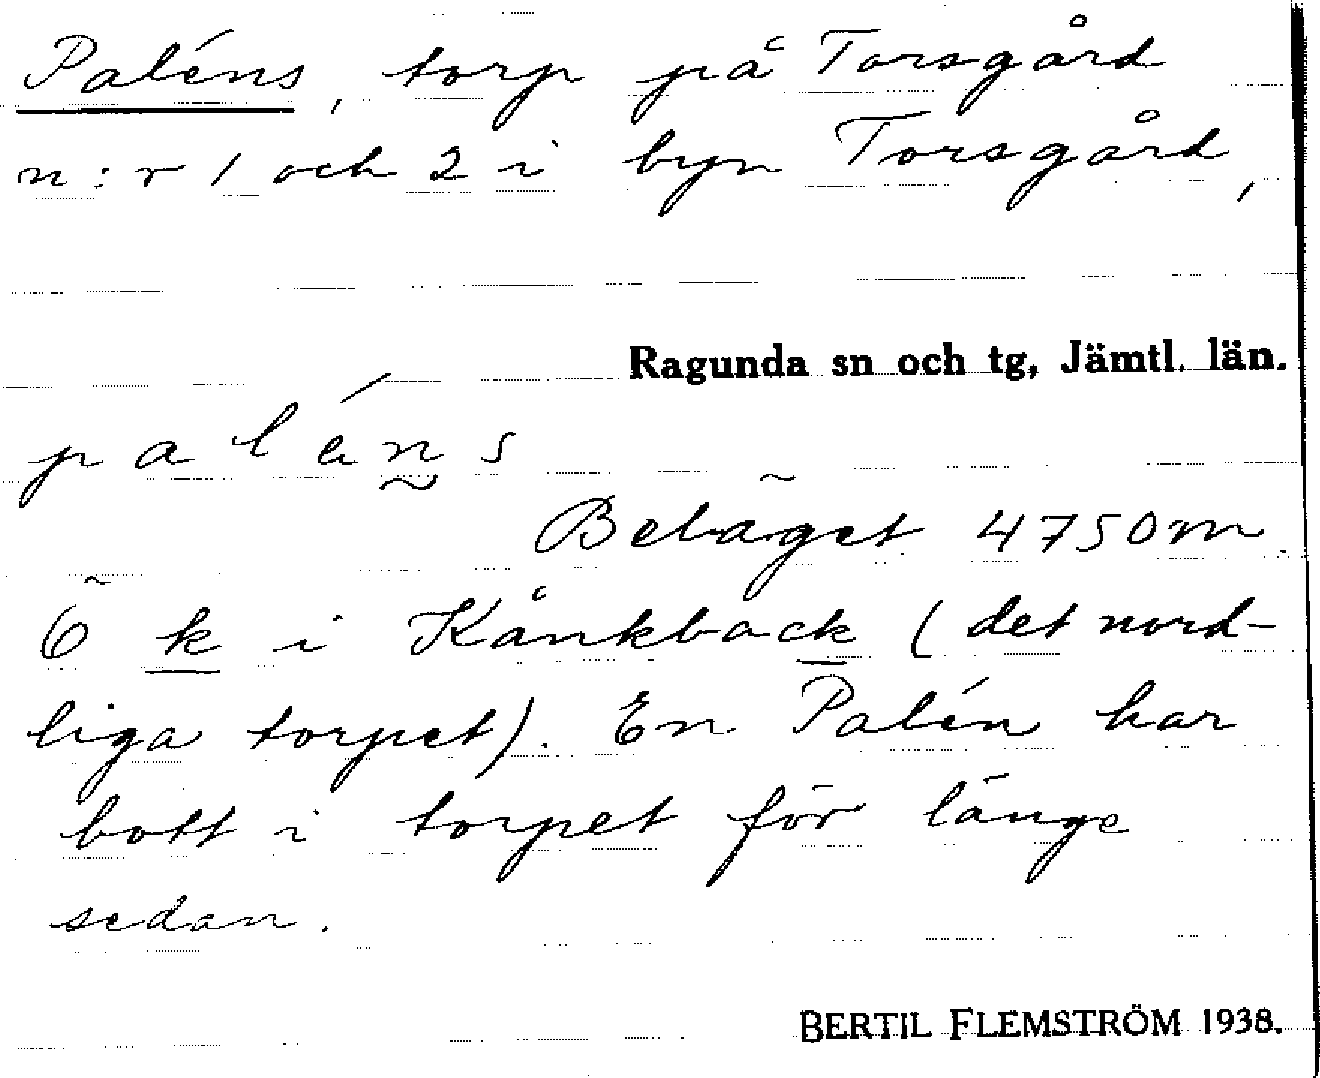 Paléns, torp på Torsgård
n:r 1 och 2 i byn Torsgård,
Ragunda sn och tg, Jämtl. län.
paléns
Beläget 4750 m
Ö k i Kånkback (det nord-
liga torpet). En Palén har
bott i torpet för länge
sedan.
BERTIL FLEMSTRÖM 1938.